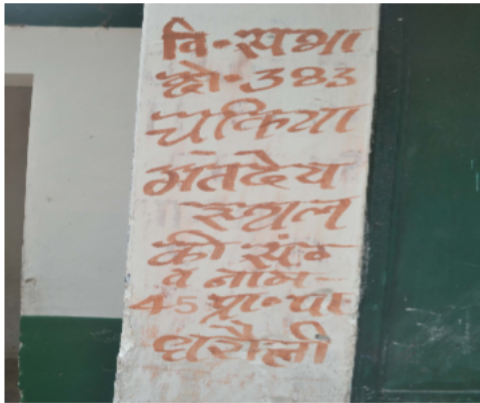 वि-सभा
क्षे०-383
चकिया
मतदेय
स्थल
की सं०
व नाम-
45 प्रा० पा०
धरौली